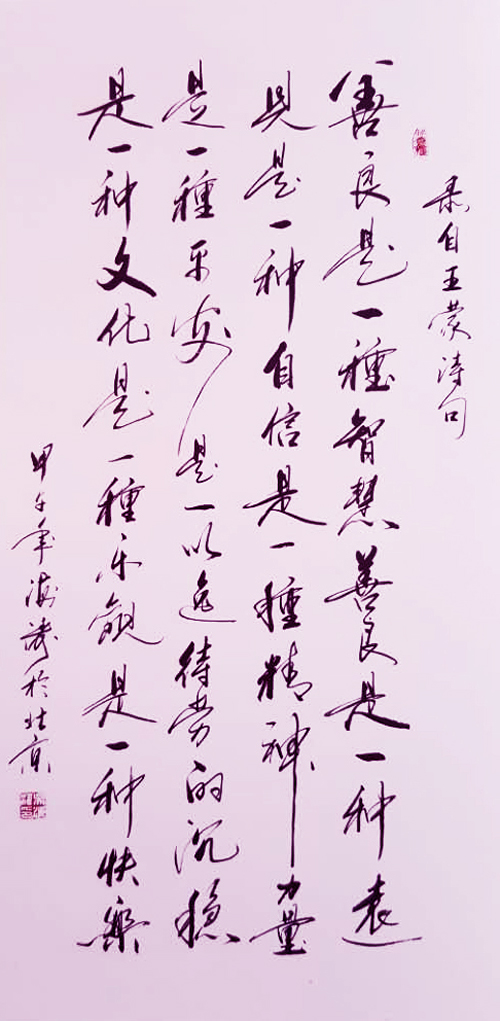 录自王蒙诗句
善良是一種智慧善良是一种遠
見是一种自信是一種精神力量
是一種平安是一以逸待劳的沉稳
是一种文化是一種乐觀是一种快樂
甲午年海涛於北京